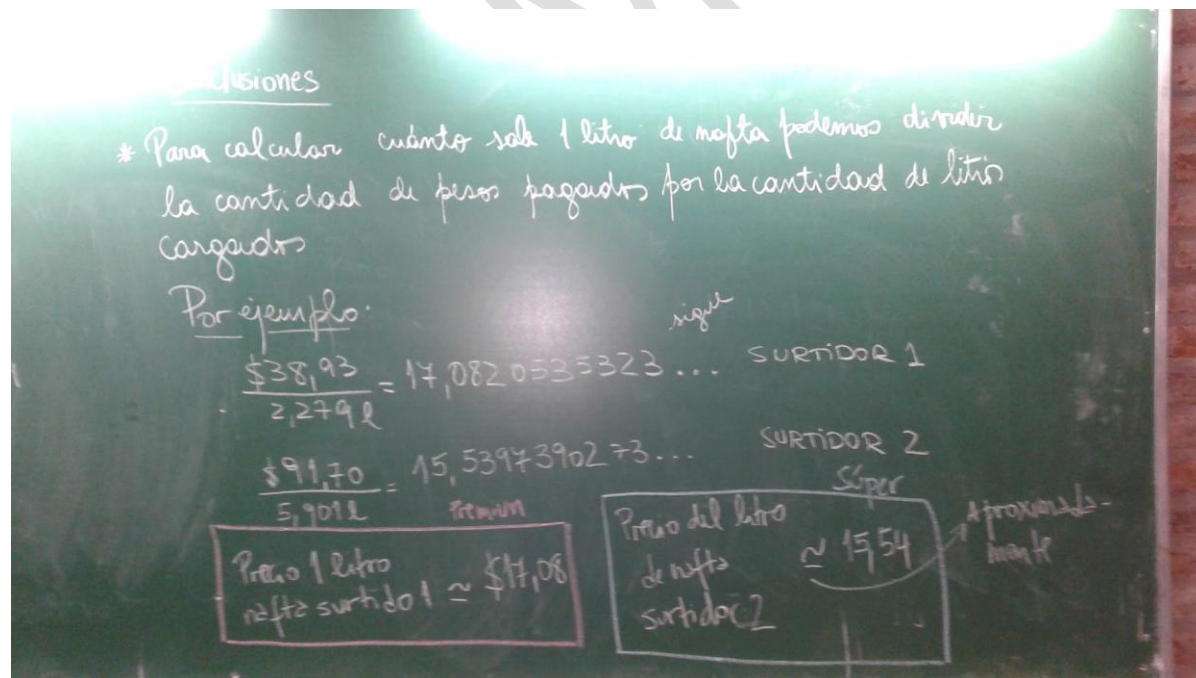 Conclusiones
* Para calcular cuánto sale 1 litro de nafta podemos dividir
la cantidad de pesos pagados por la cantidad de litros
cargados
Por ejemplo:
sigue
$38,93 / 2,279 l = 17,0820535323... SURTIDOR 1
$91,70 / 5,901 l = 15,5397390273... SURTIDOR 2
Premium
Precio 1 litro
nafta surtido 1 ≃ $17,08
Súper
Precio del litro
de nafta ≃ 15,54
surtidor 2
Aproximada-
mente